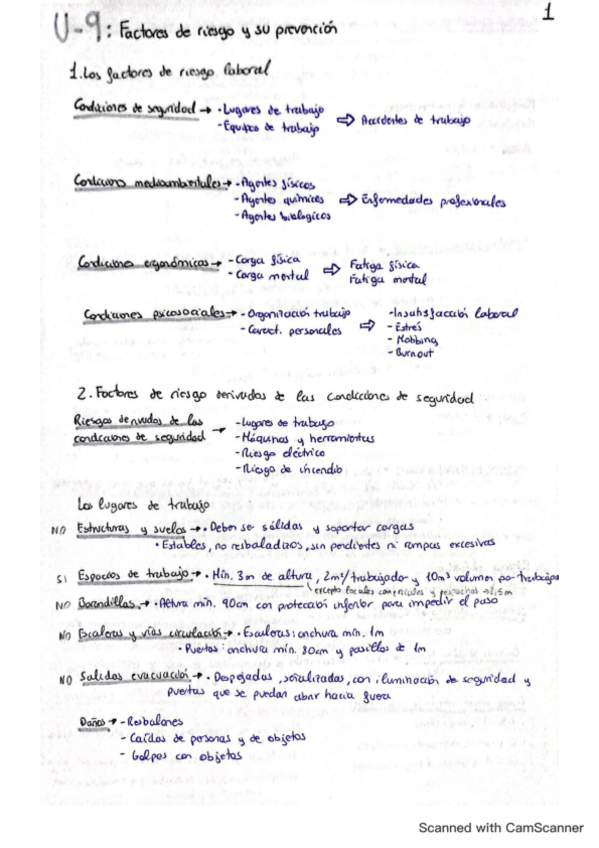 1
U-9: Factores de riesgo y su prevención
1. Los factores de riesgo laboral
Condiciones de seguridad → · Lugares de trabajo
- Equipos de trabajo ⇒ Accidentes de trabajo
Condiciones medioambientales → · Agentes físicos
- Agentes químicos ⇒ Enfermedades profesionales
- Agentes biológicos
Condiciones ergonómicas → - Carga física
- Carga mental ⇒ Fatiga física
Fatiga mental
Condiciones psicosociales → · Organización trabajo
- Caract. personales ⇒ - Insatisfacción laboral
- Estrés
- Mobbing
- Burnout
2. Factores de riesgo derivados de las condiciones de seguridad
Riesgos derivados de las
condiciones de seguridad → - Lugares de trabajo
- Máquinas y herramientas
- Riesgo eléctrico
- Riesgo de incendio
Los lugares de trabajo
NO Estructuras y suelos → · Deben se sólidas y soportar cargas
· Estables, no resbaladizos, sin pendientes ni rampas excesivas
SI Espacios de trabajo → · Mín. 3m de altura, 2m²/trabajador y 10m³ volumen por trabajador
excepto locales comerciales y despachos → 2,5m
NO Barandillas → · Altura mín. 90cm con protección inferior para impedir el paso
NO Escaleras y vías circulación → · Escaleras: anchura mín. 1m
· Puertas: anchura mín. 80cm y pasillos de 1m
NO Salidas evacuación → · Despejadas, señalizadas, con iluminación de seguridad y
puertas que se puedan abrir hacia fuera
Daños → - Resbalones
- Caídas de personas y de objetos
- Golpes con objetos
Scanned with CamScanner